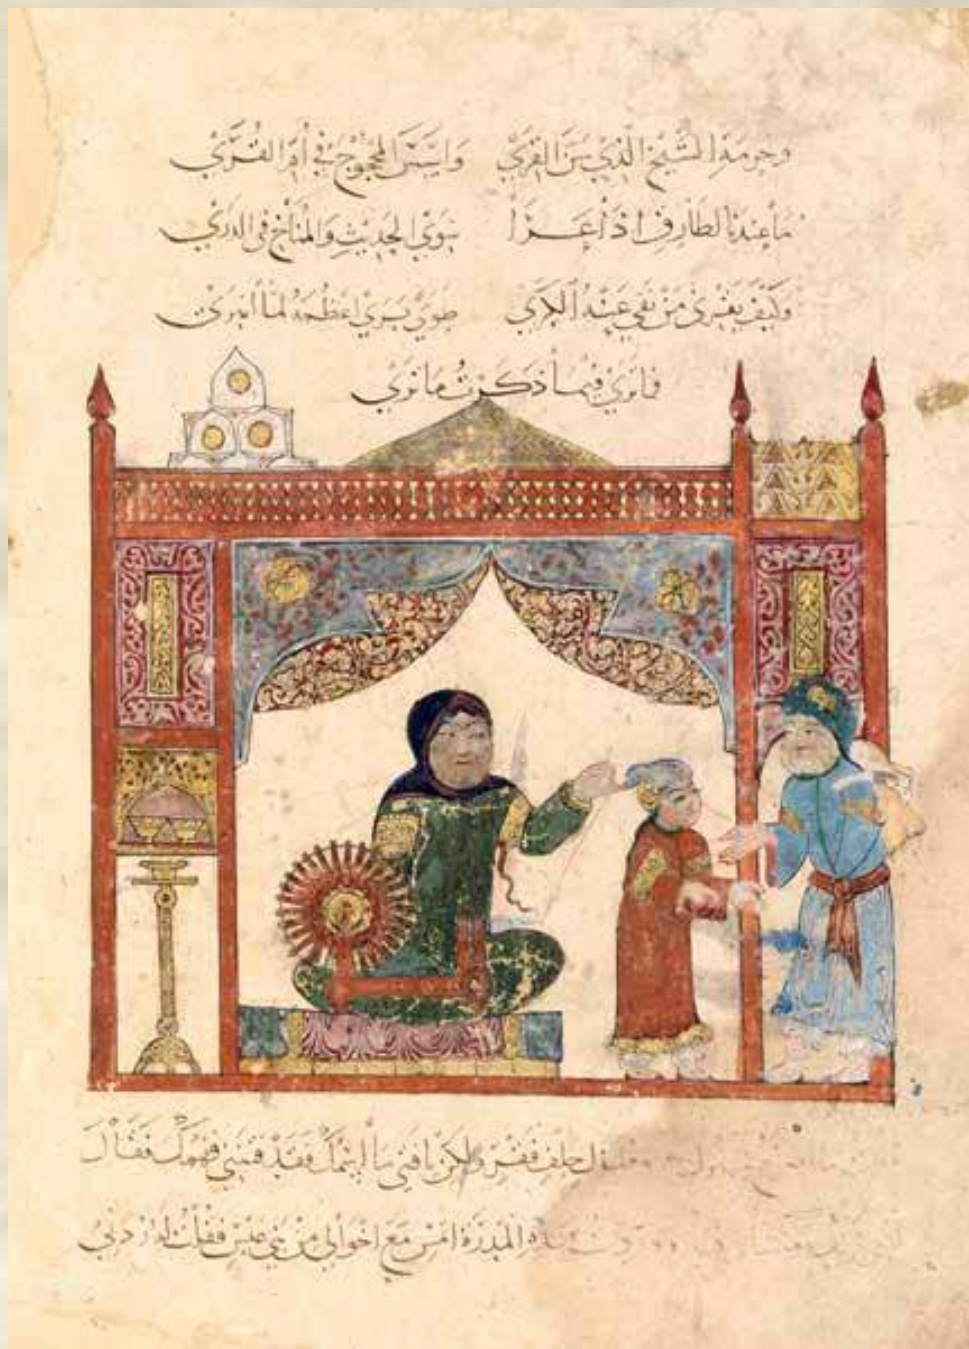 وحرمة الشيخ الذي سن القرى واسس المحجوج في أم القرى
ما عندنا لطارق اذا عرا سوى الحديث والمناخ في الذرى
وكيف يقري من نفى عنه الكرى طوى برى اعظمه لما انبرى
فما ترى فيما ذكرت ما ترى
حلف فقر ولكن يا فتى ما اسمك فقد فتنني فهمك فقال
المدرة امس مع اخوالي من بني عبس فقلت له زدني